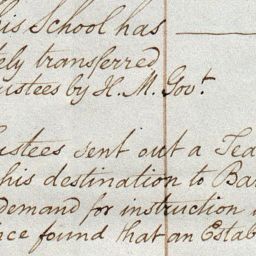 his School has
ely transferred
ustees by H. M. Govt.
ustees sent out a Tea
his destination to Bar
demand for instruction
nce found that an Estab